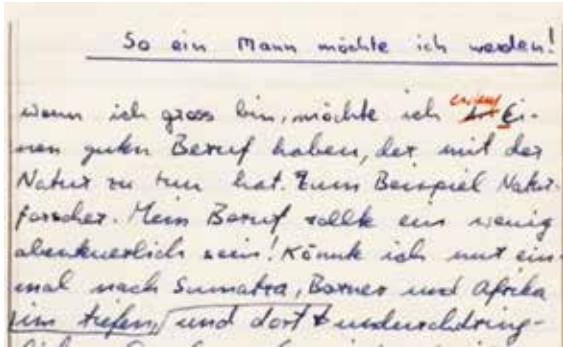 So ein Mann möchte ich werden!
wenn ich gross bin, möchte ich Ei-
nen guten Beruf haben, der mit der
Natur zu tun hat. Zum Beispiel Natur-
forscher. Mein Beruf sollte ein wenig
abenteuerlich sein! Könnte ich nur ein-
mal nach Sumatra, Borneo und Afrika
im tiefen, und dort undurchdring-